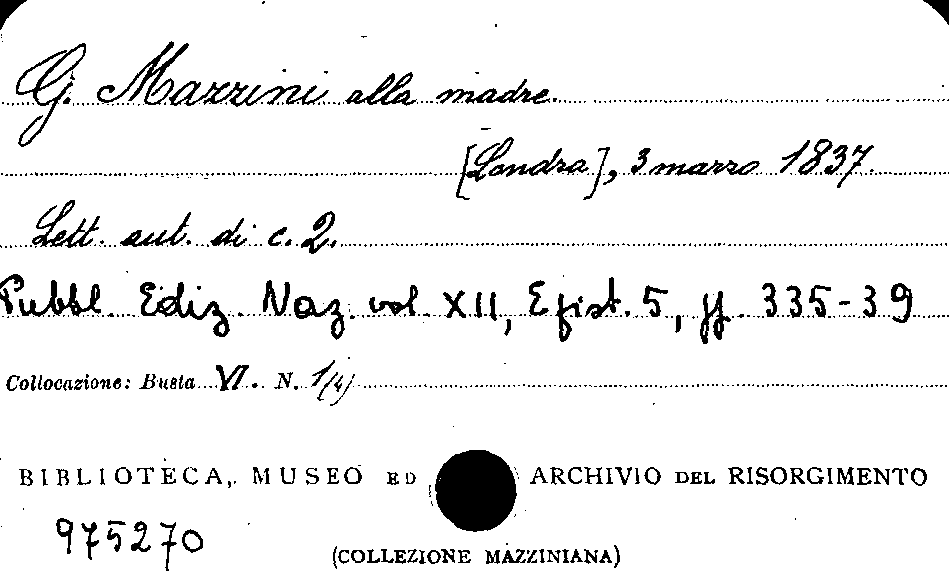 G. Mazzini alla madre.
[Londra], 3 marzo 1837.
Lett. aut. di c. 2.
Pubbl. Ediz. Naz. vol. XII, Epist. 5, pp. 335-39
Collocazione: Busta VI. N. 1/(4)
BIBLIOTECA, MUSEO ED ARCHIVIO DEL RISORGIMENTO
975270
(COLLEZIONE MAZZINIANA)